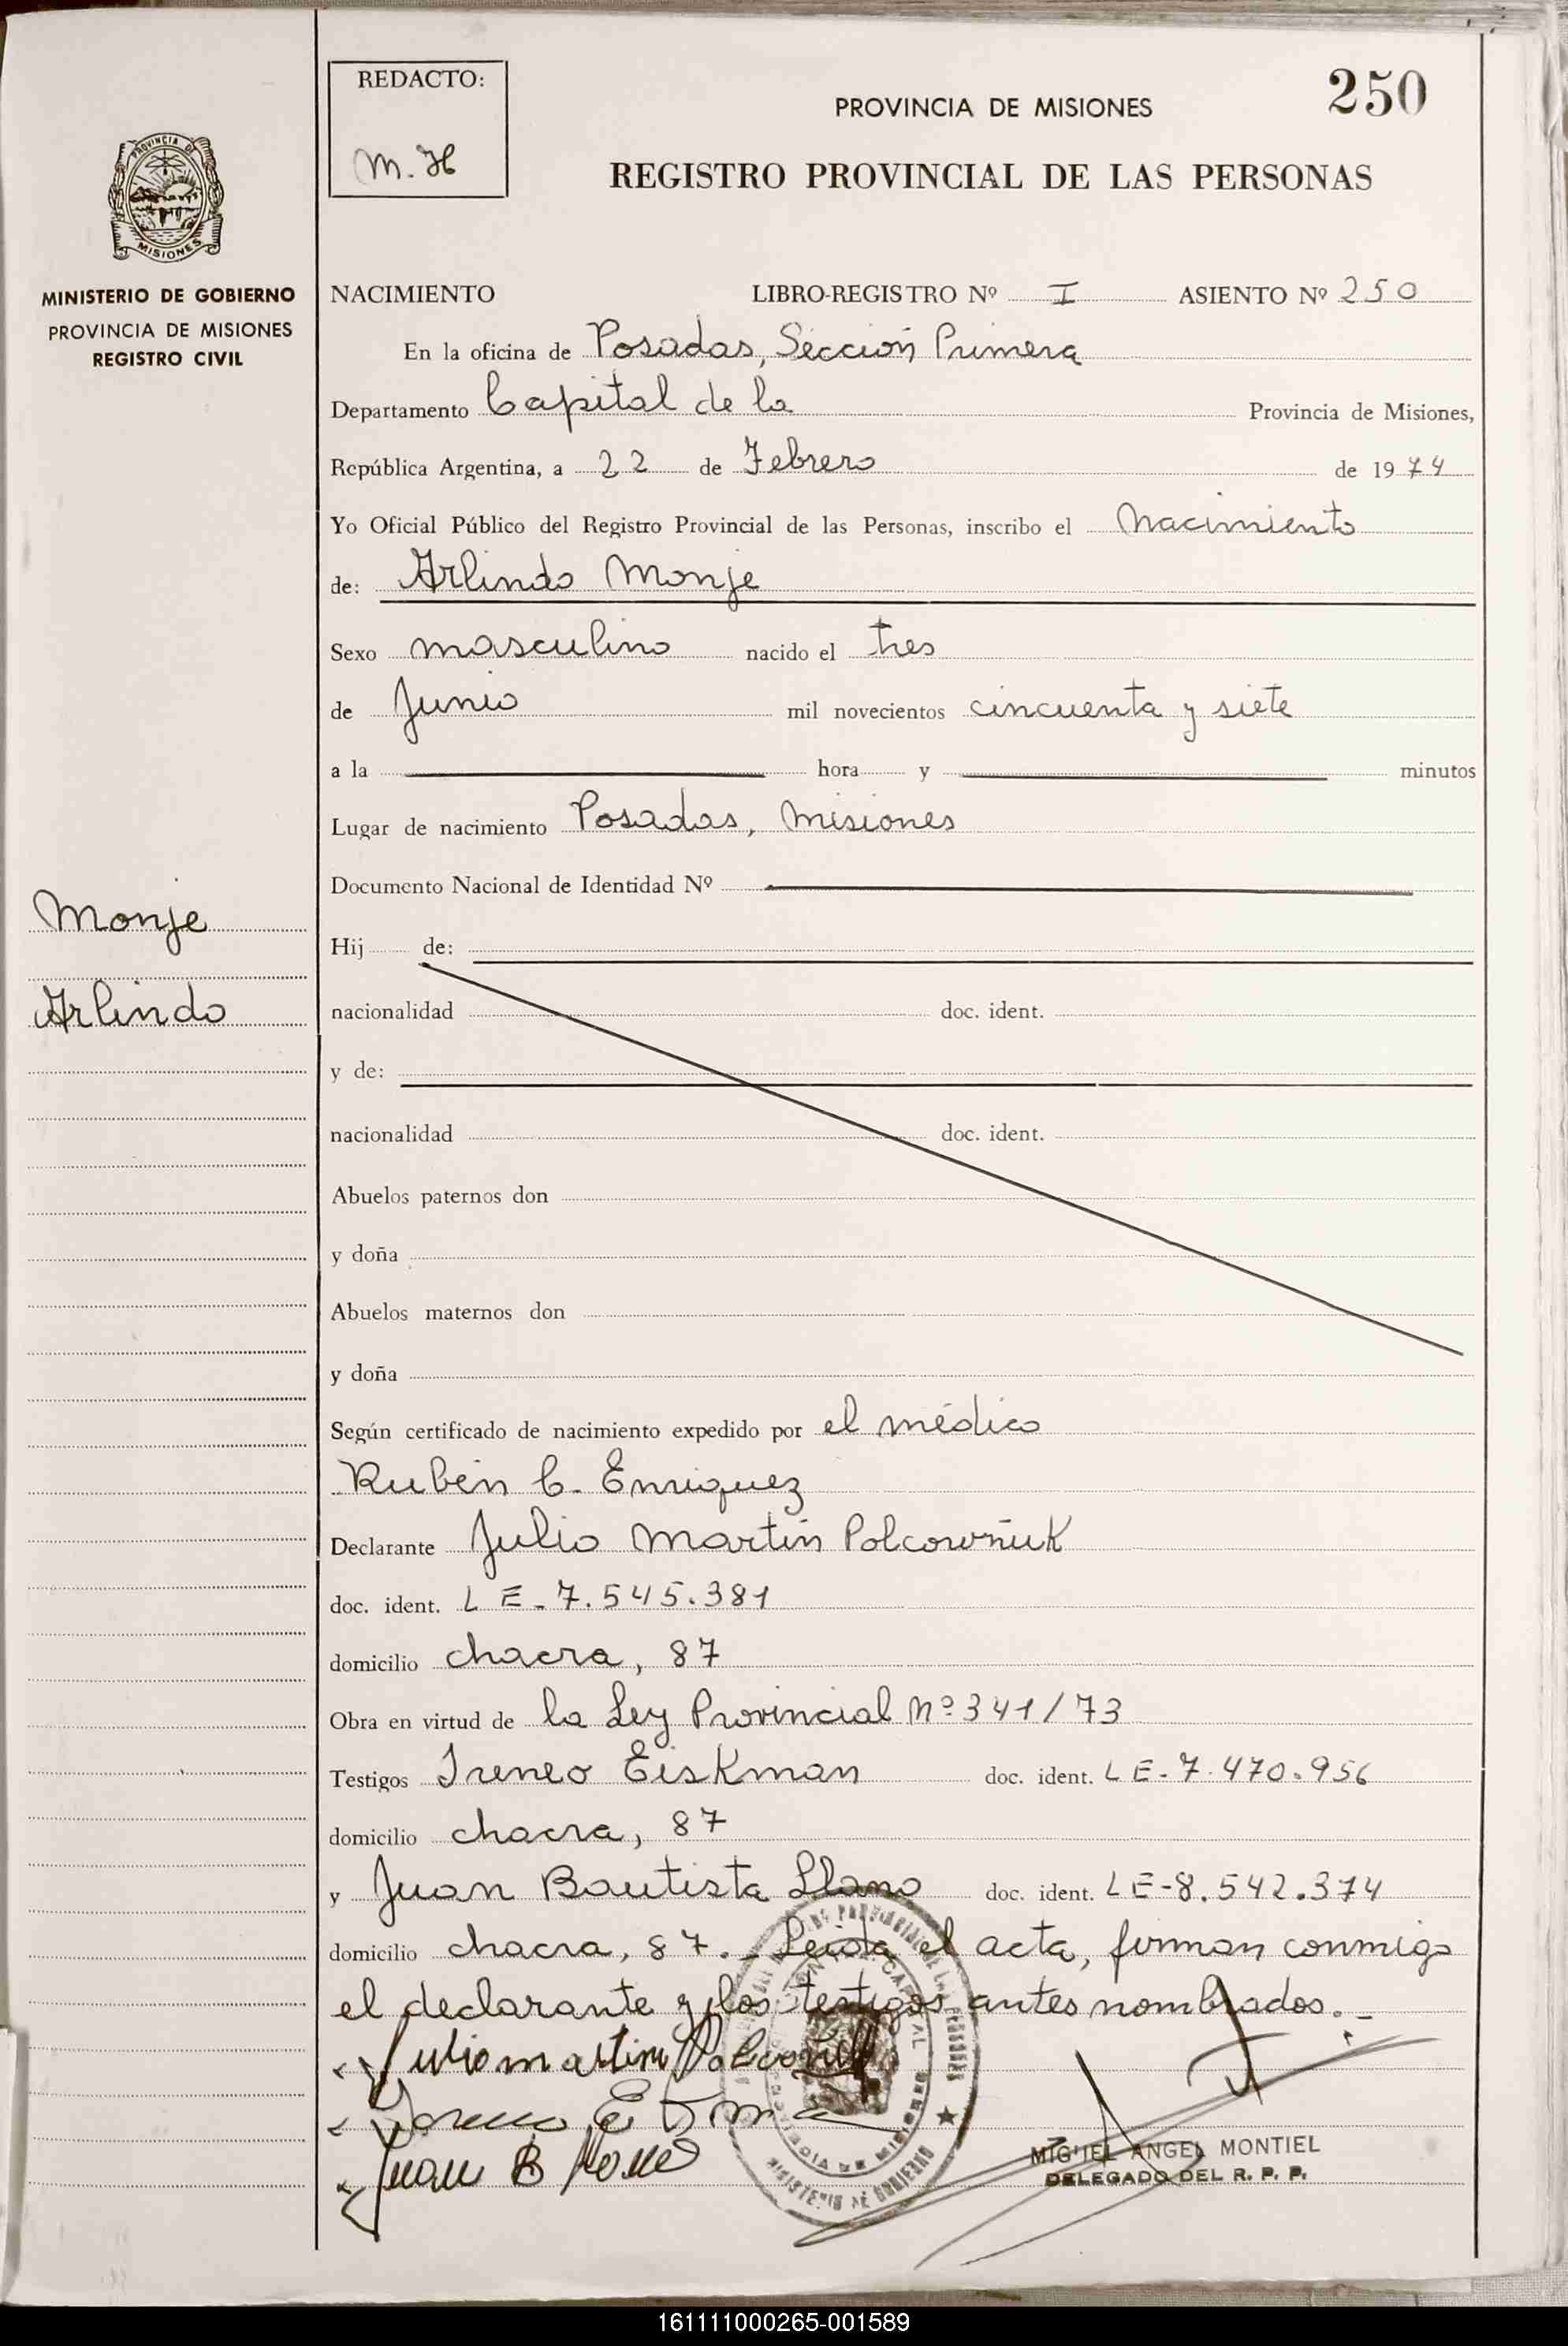 REDACTO:
M. H
PROVINCIA DE MISIONES
250
REGISTRO PROVINCIAL DE LAS PERSONAS
PROVINCIA DE
MISIONES
MINISTERIO DE GOBIERNO
PROVINCIA DE MISIONES
REGISTRO CIVIL
NACIMIENTO LIBRO-REGISTRO Nº I ASIENTO Nº 250
En la oficina de Posadas, Sección Primera
Departamento Capital de la Provincia de Misiones,
República Argentina, a 22 de Febrero de 1974
Yo Oficial Público del Registro Provincial de las Personas, inscribo el Nacimiento
de: Arlindo Monje
Sexo masculino nacido el tres
de Junio mil novecientos cincuenta y siete
a la hora y minutos
Lugar de nacimiento Posadas, Misiones
Documento Nacional de Identidad Nº
Monje
Hij de:
Arlindo
nacionalidad doc. ident.
y de:
nacionalidad doc. ident.
Abuelos paternos don
y doña
Abuelos maternos don
y doña
Según certificado de nacimiento expedido por el médico
Rubén C. Enriquez
Declarante Julio Martín Polcowñuk
doc. ident. L E - 7.545.381
domicilio chacra, 87
Obra en virtud de la Ley Provincial Nº 341/73
Testigos Ireneo Eiskman doc. ident. L E - 7.470.956
domicilio chacra, 87
y Juan Bautista Llano doc. ident. L E - 8.542.374
domicilio chacra, 87. - Leída el acta, firman conmigo
el declarante y los testigos antes nombrados. -
Julio martin
Juan B
MIGUEL ANGEL MONTIEL
DELEGADO DEL R. P. P.
MINISTERIO DE GOBIERNO
161111000265-001589